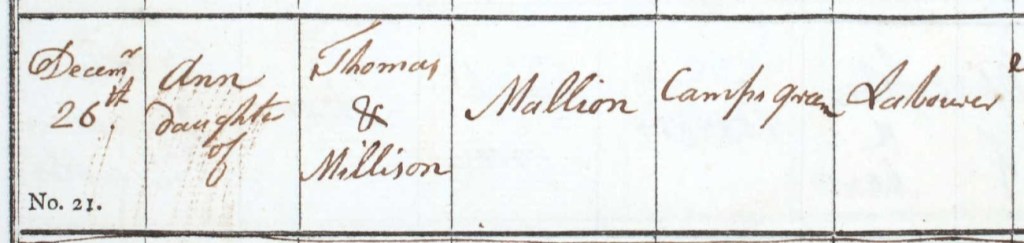 Decemr
26th.
No. 21.
Ann
daughter
of
Thomas
&
Millison
Mallion
Labourer